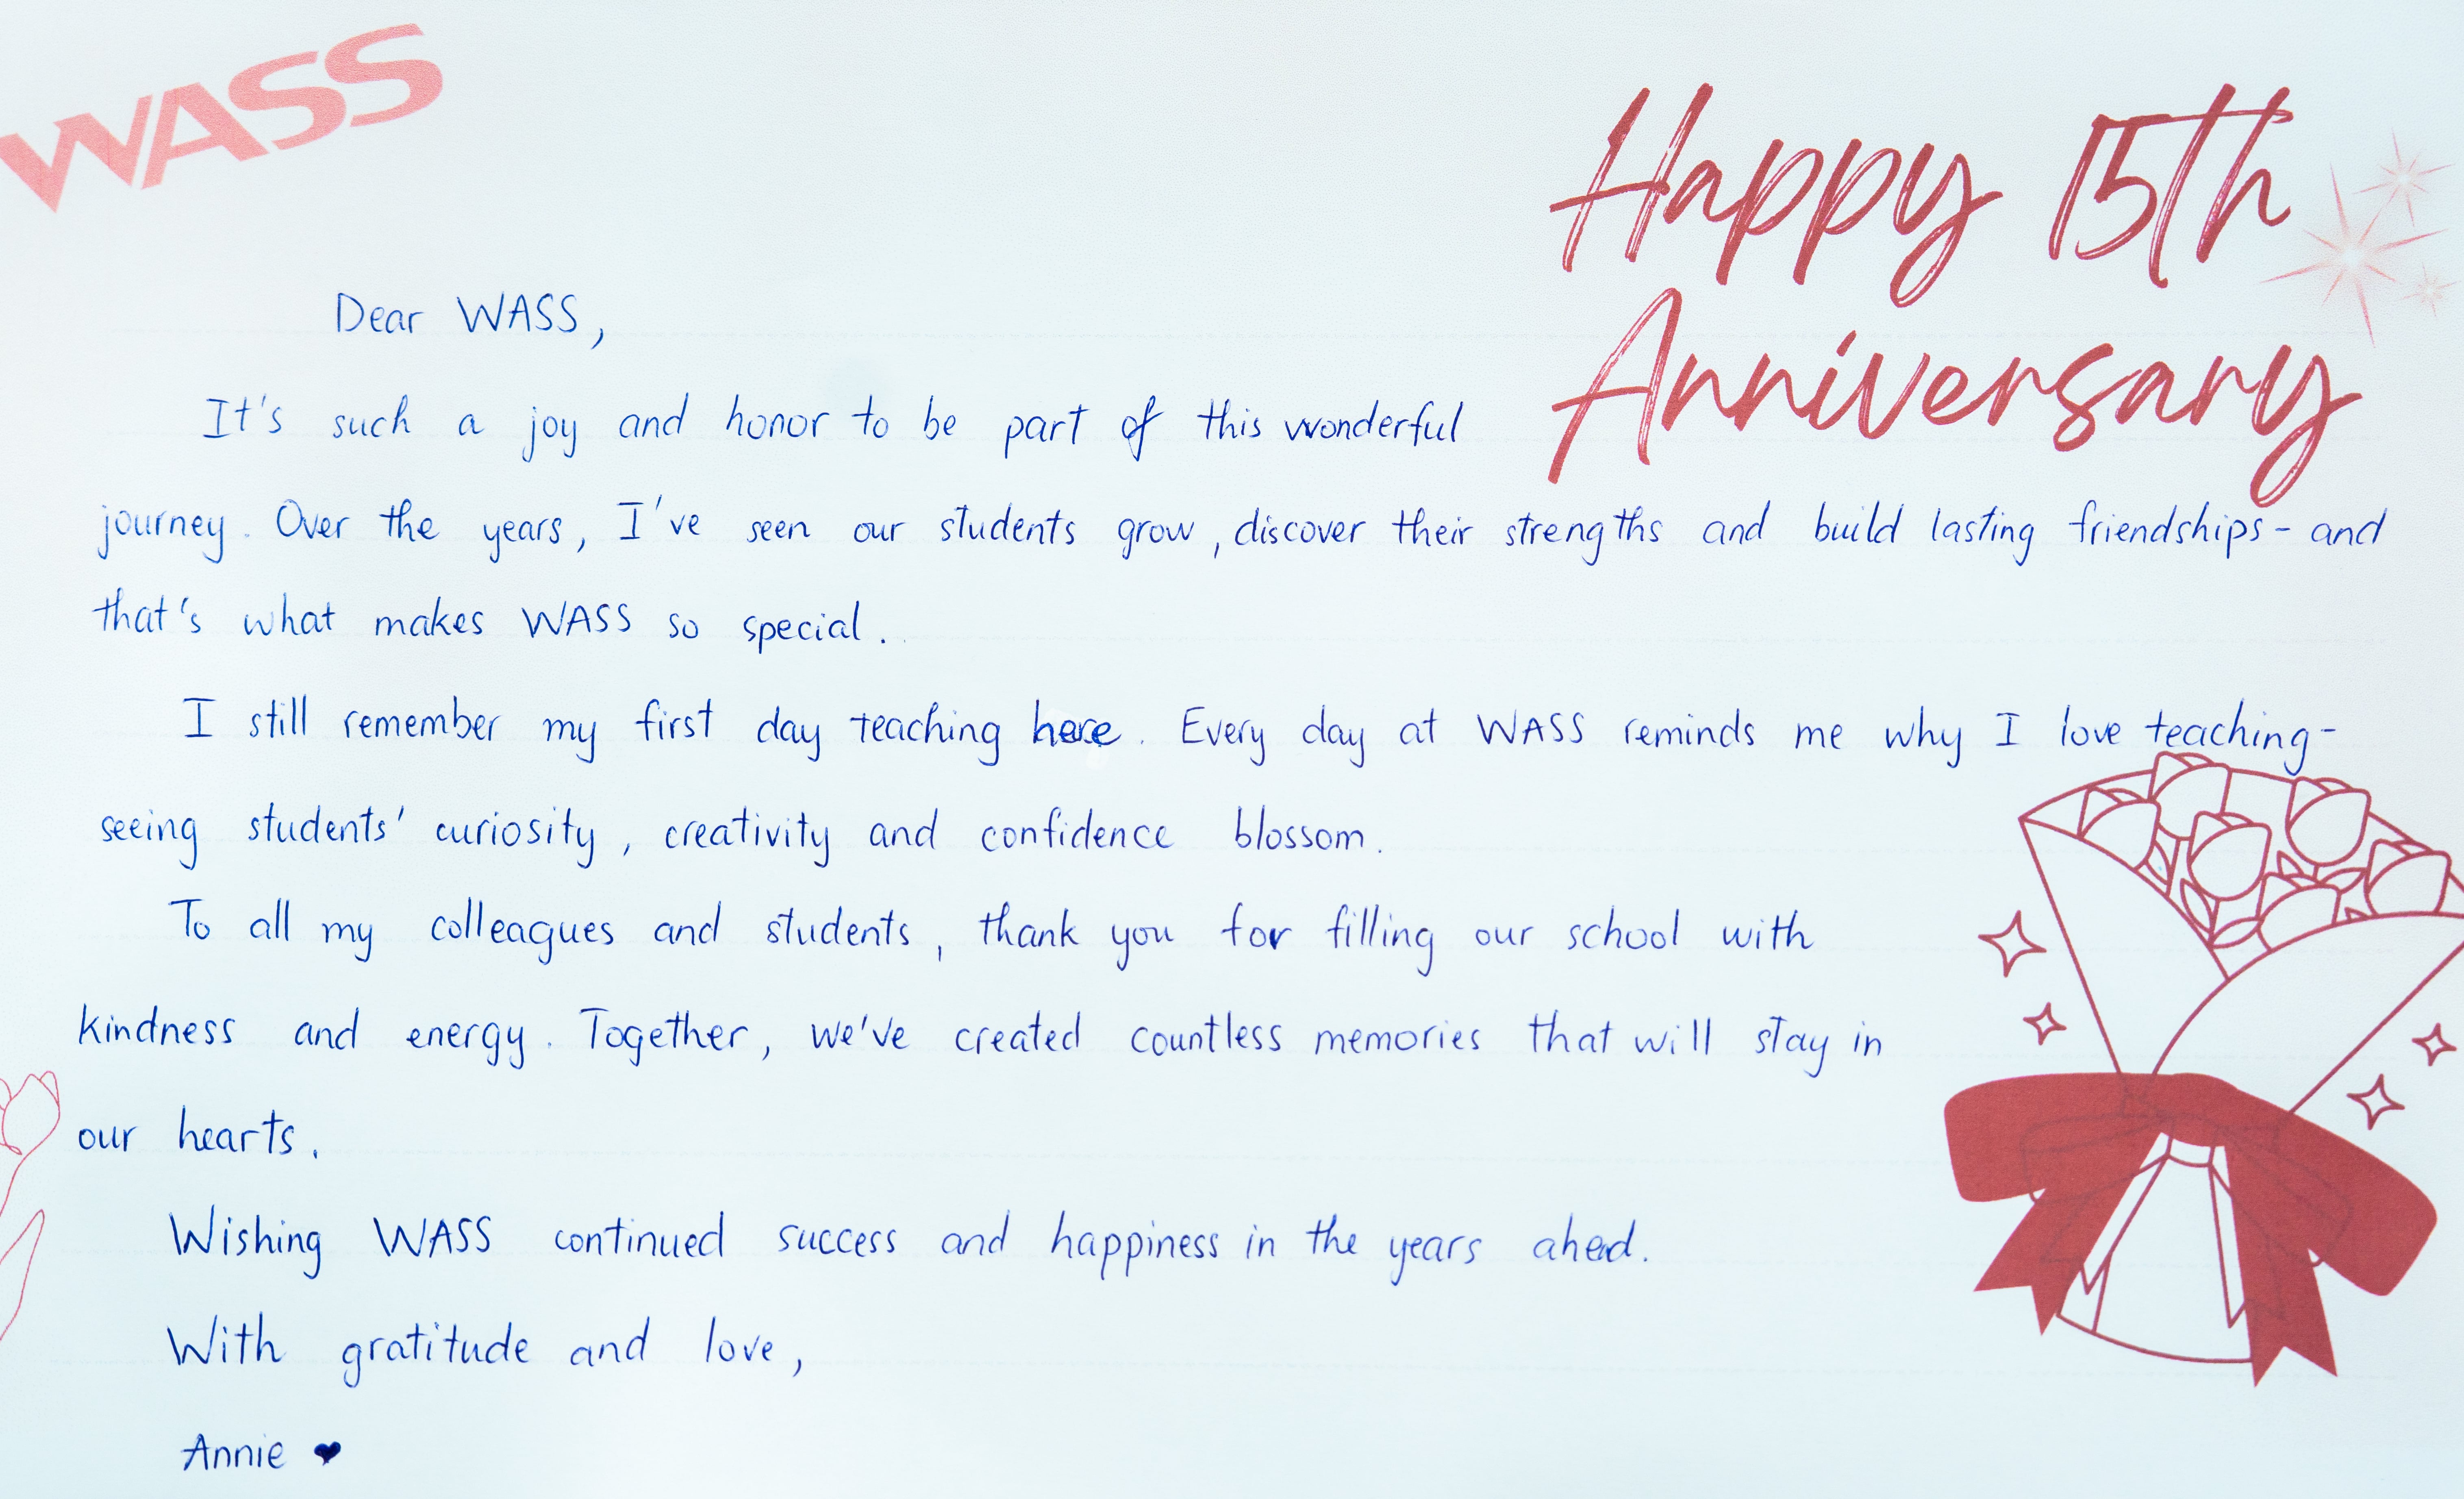 WASS
Happy 15th
Anniversary
Dear WASS,
It's such a joy and honor to be part of this wonderful
journey. Over the years, I've seen our students grow, discover their strengths and build lasting friendships - and
that's what makes WASS so special.
I still remember my first day teaching here. Every day at WASS reminds me why I love teaching-
seeing students' curiosity, creativity and confidence blossom.
To all my colleagues and students, thank you for filling our school with
kindness and energy. Together, we've created countless memories that will stay in
our hearts.
Wishing WASS continued success and happiness in the years ahead.
With gratitude and love,
Annie ♥